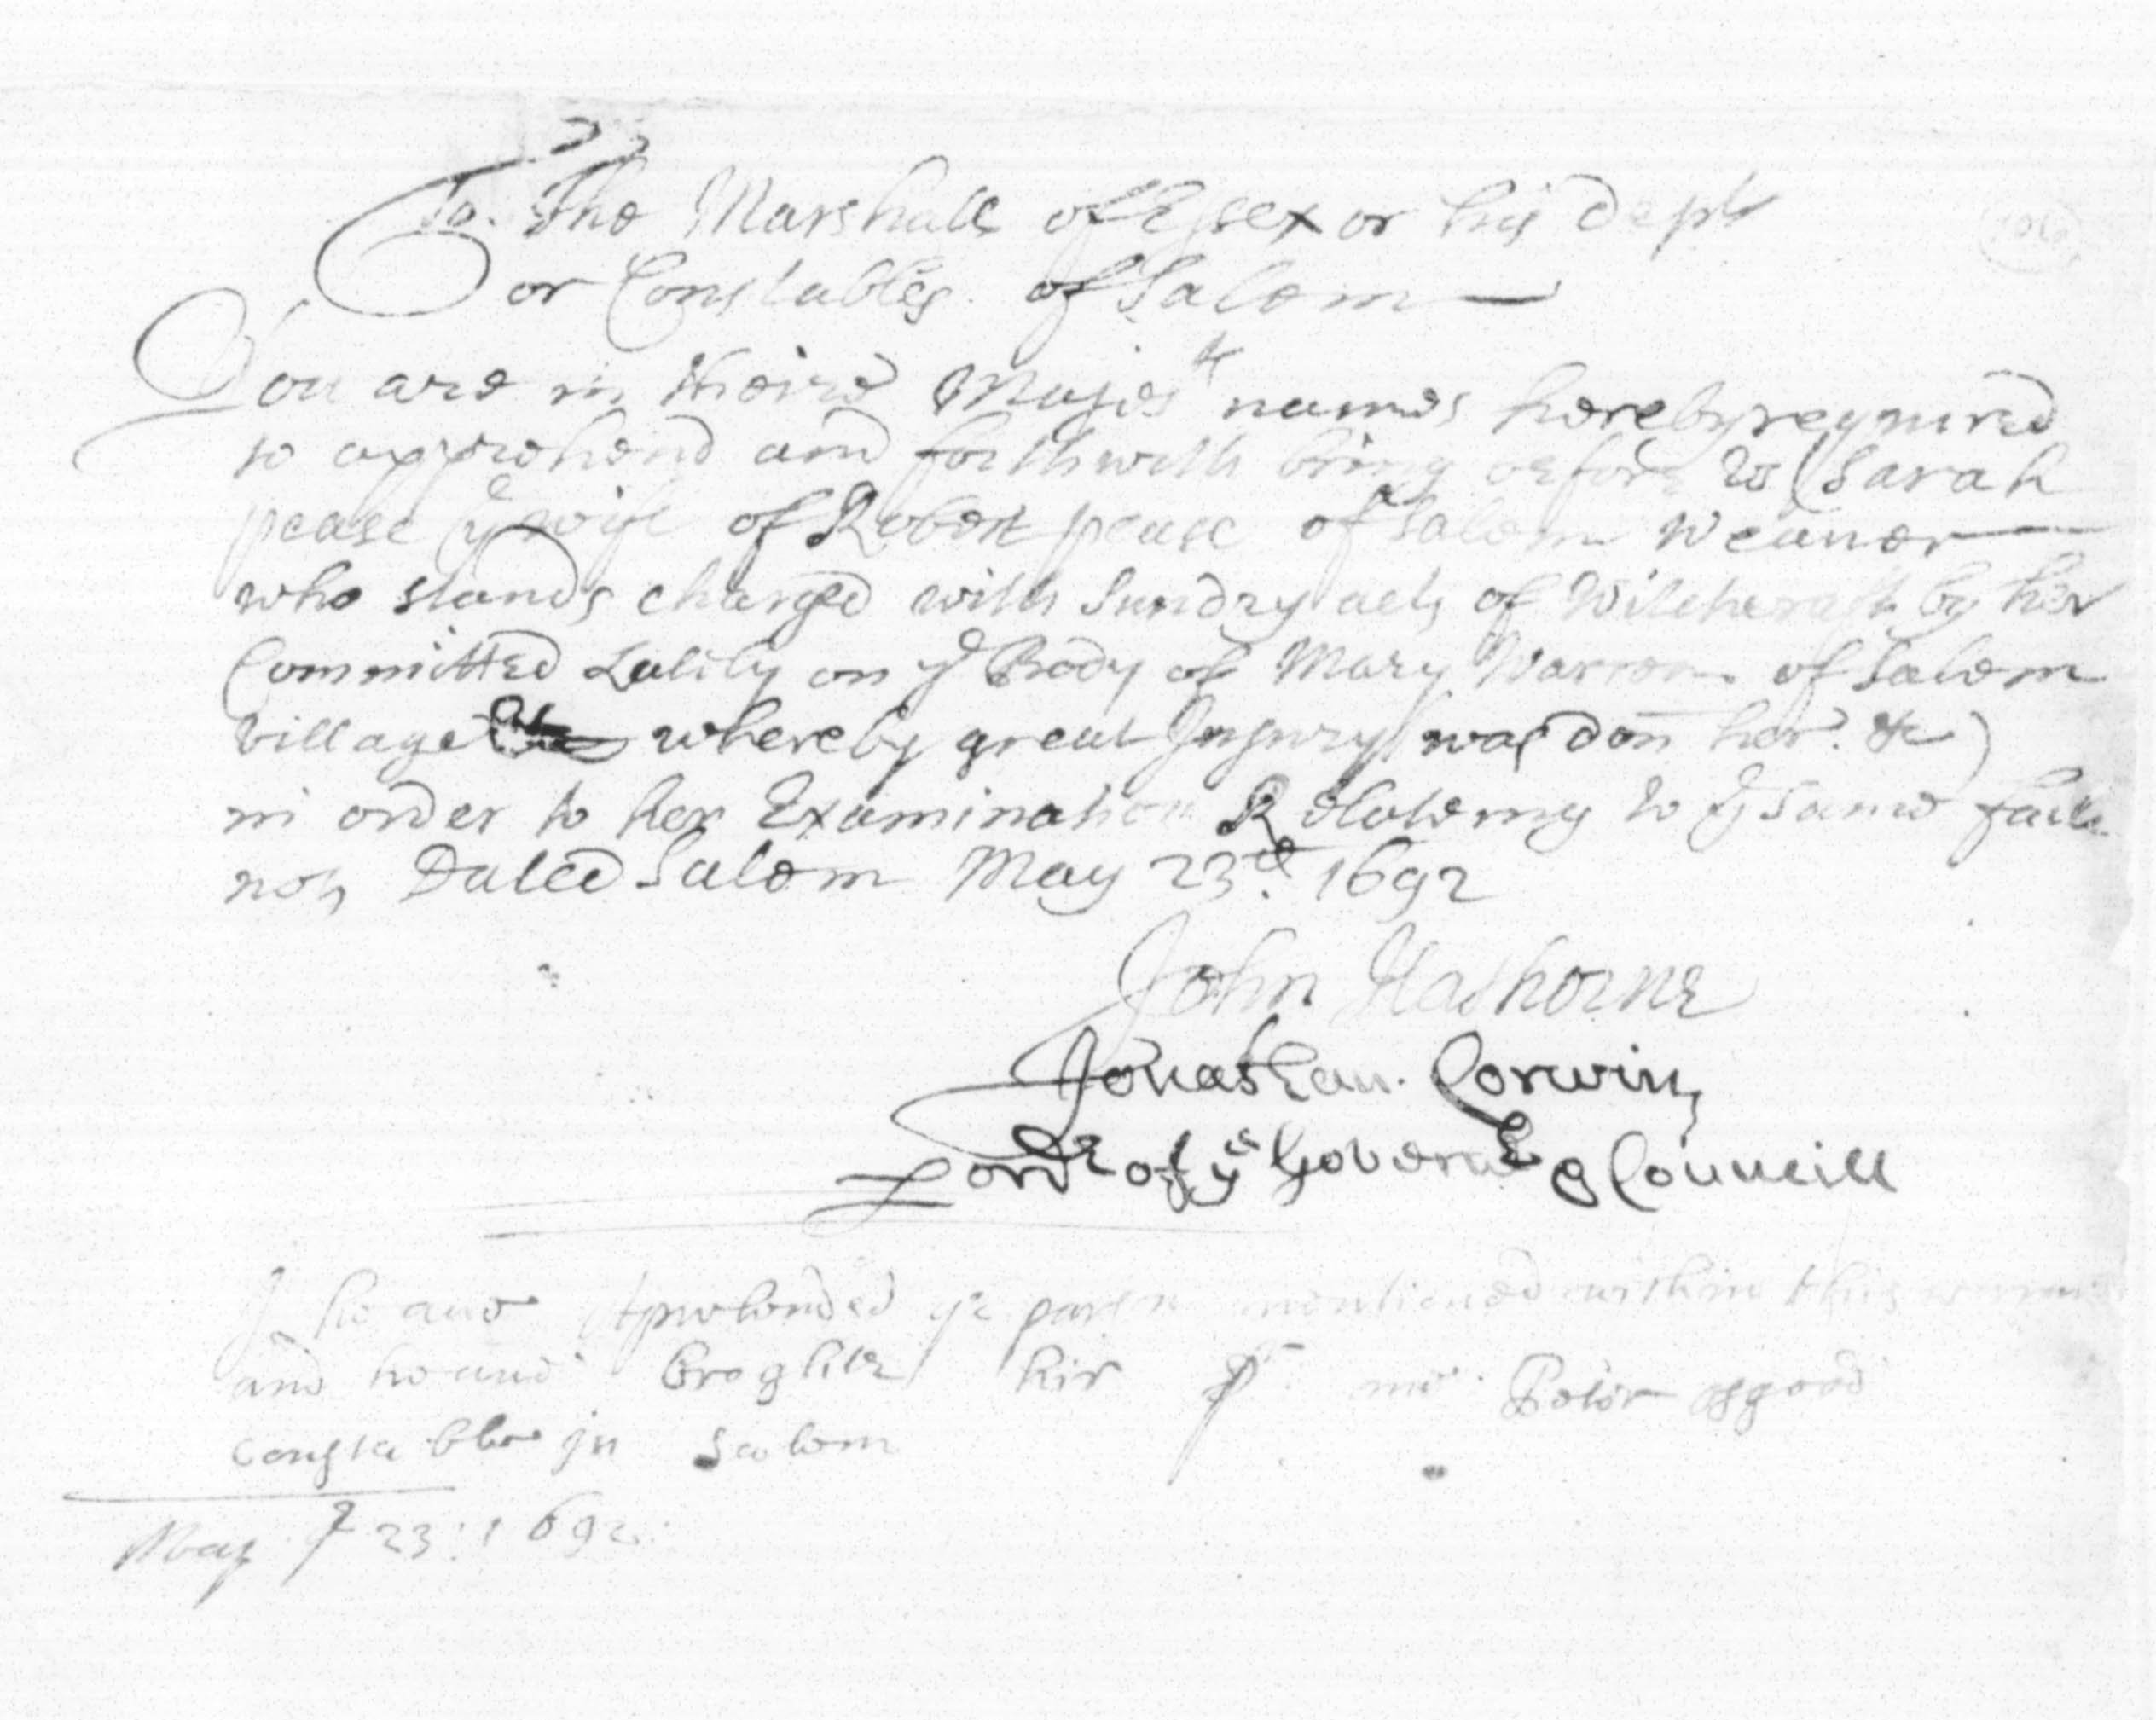 To. The Marshall of Essex or his dept
or Constables of Salem
You are in theire Majesties names hereby required
to apprehend and forthwith bring before us Sarah
pease ye wife of Robert pease of Salem Weaver
who stands charged with Sundry acts of Witchcraft by her
Committed Lately on ye Body of Mary Warren of Salem
village whereby great Injury was don her &c)
in order to her Examination Relateing to ye same faile
not, Dated Salem May 23d. 1692
John Hathorne
Jonathan. Corwin
ordr of ye Governr & Councill
I heaue Aprehended ye parson mentioned within this
and heaue broghte hir pr me Peter osgood
constable in Salem
May ye 23: 1692